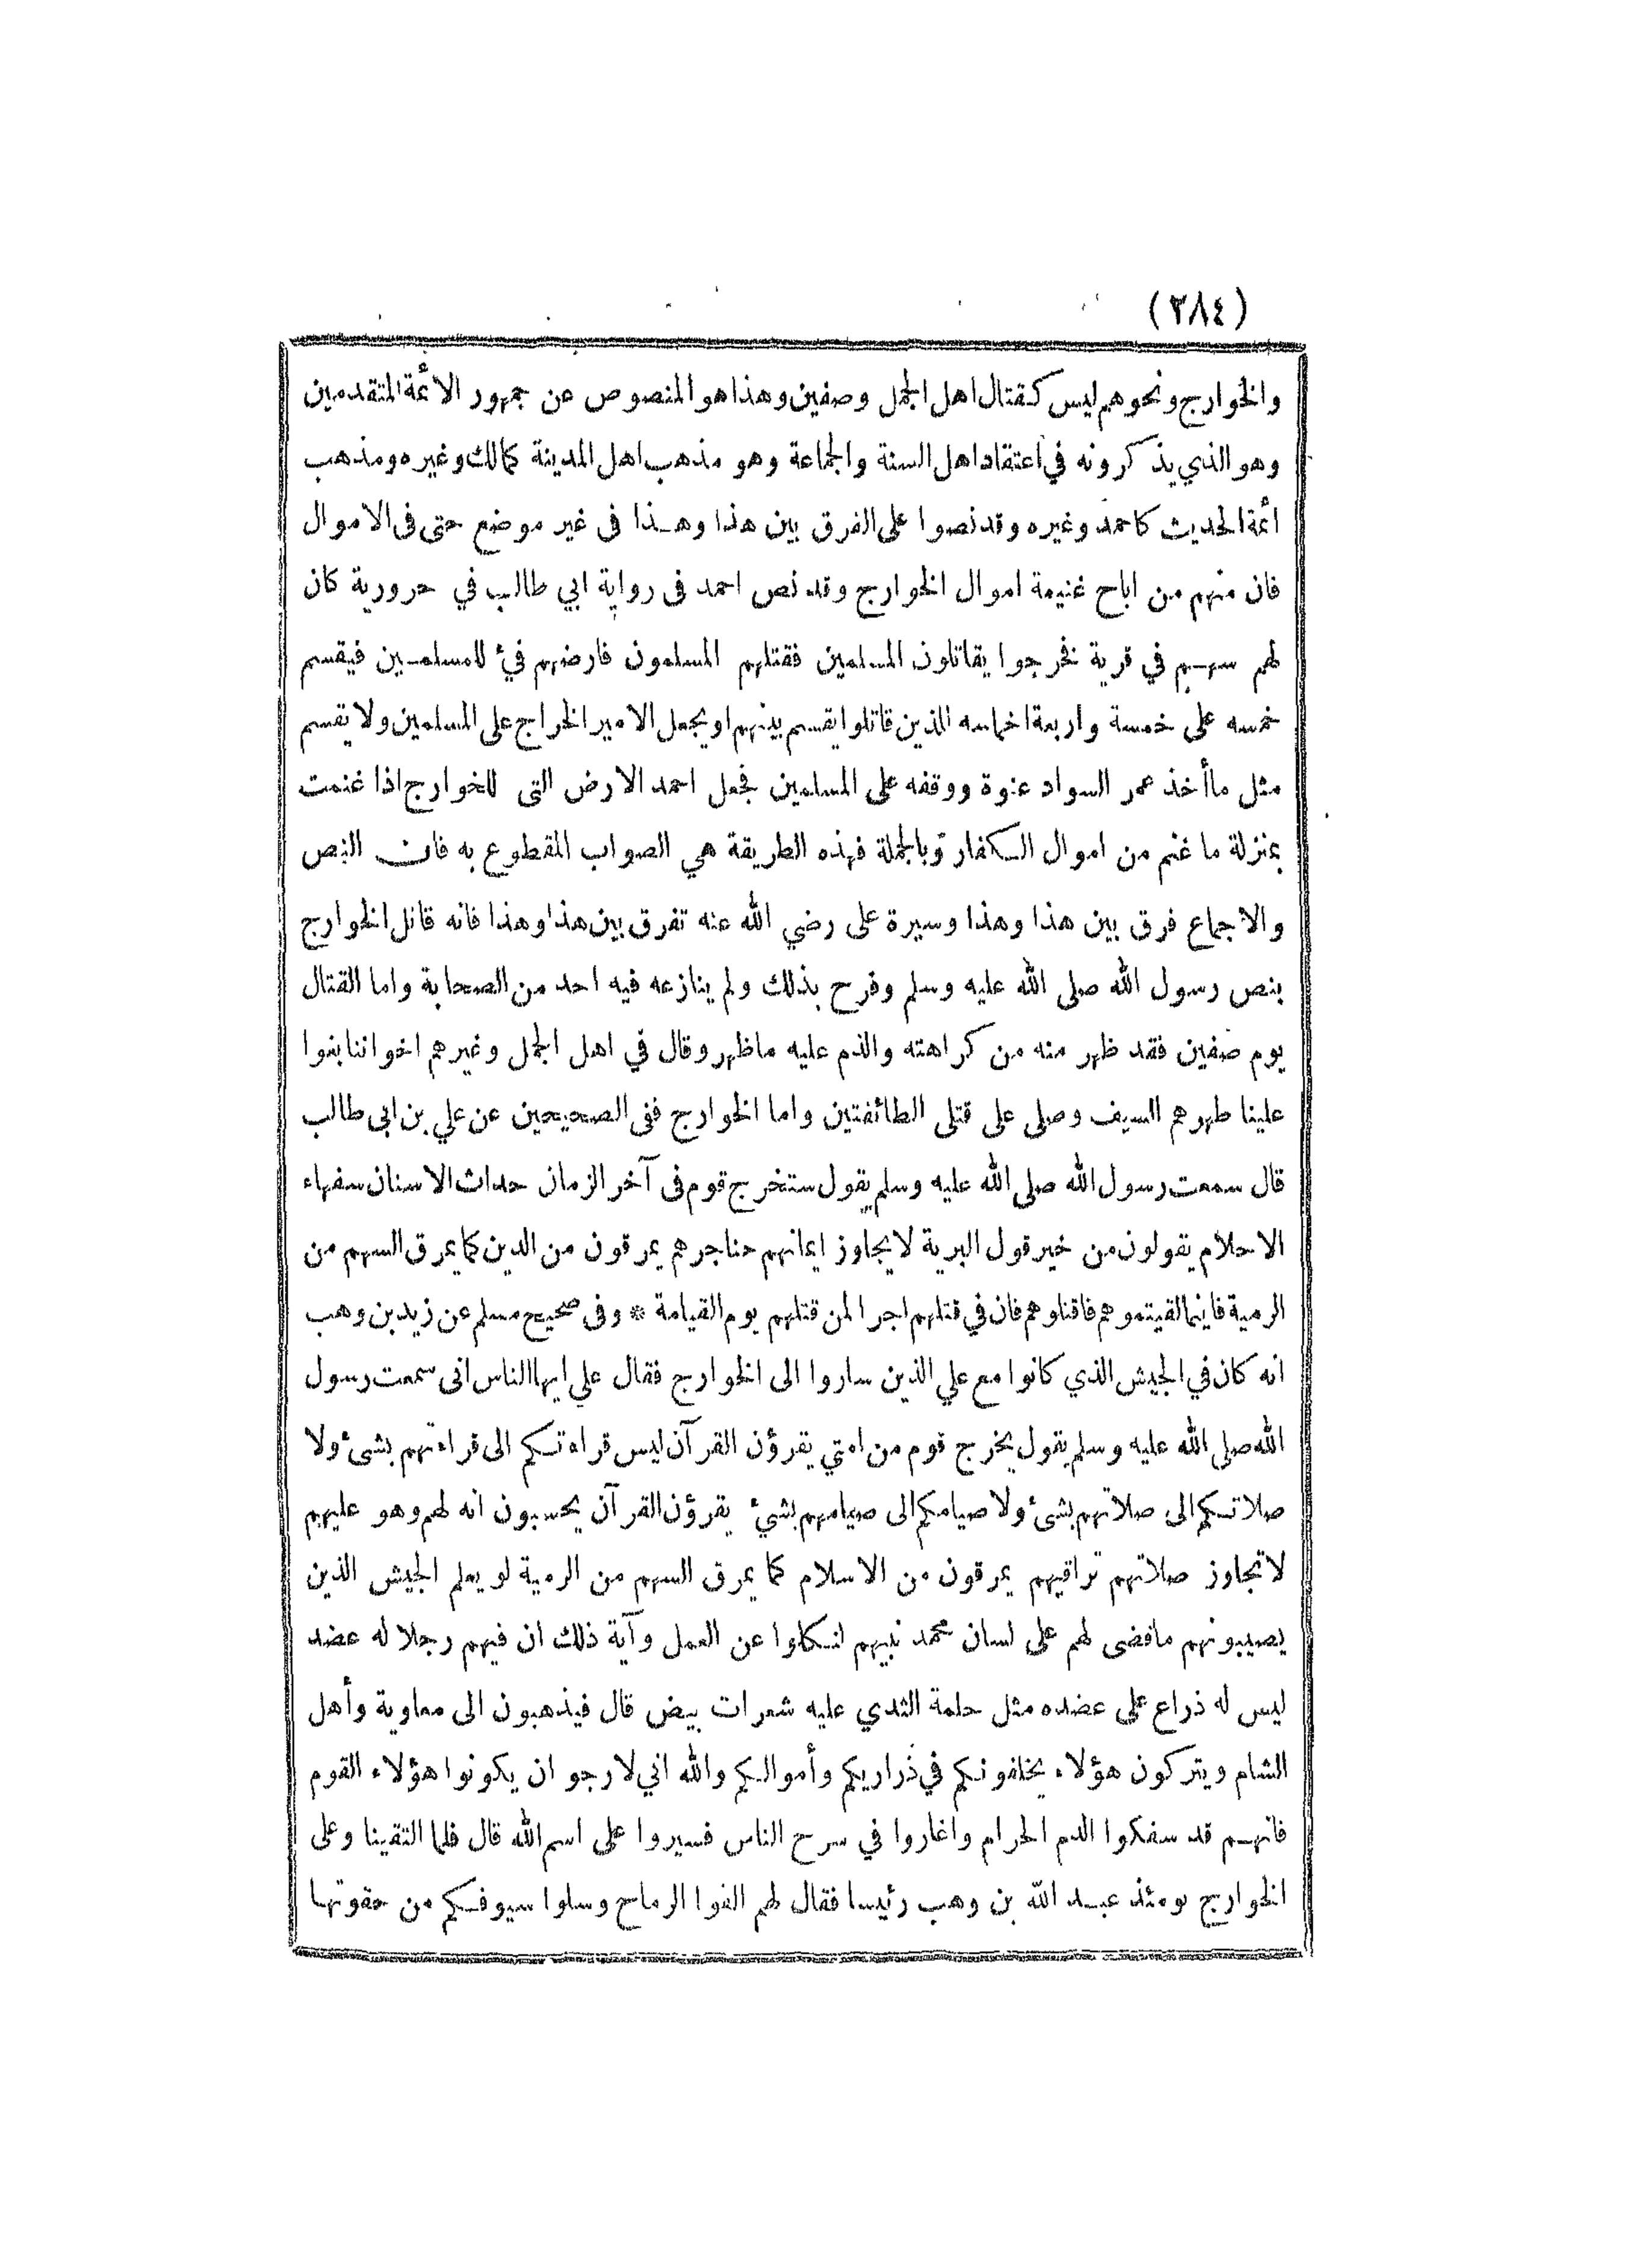 (٢٨٤)
والخوارج ونحوهم ليس كقتال اهل الجمل وصفين وهذا هو المنصوص عن جمهور الائمة المتقدمين
وهو الذي يذكرونه في اعتقاد اهل السنة والجماعة وهو مذهب اهل المدينة كمالك وغيره ومذهب
ائمة الحديث كاحمد وغيره وقد نصوا على الفرق بين هذا وهذا فى غير موضع حتى فى الاموال
فان منهم من اباح غنيمة اموال الخوارج وقد نص احمد فى رواية ابي طالب في حرورية كان
لهم سهم في قرية فخرجوا يقاتلون المسلمين فقتلهم المسلمون فارضهم فيئ للمسلمين فيقسم
خمسه على خمسة واربعة اخماسه للذين قاتلوا يقسم بينهم او يجعل الامير الخراج على المسلمين ولا يقسم
مثل ما أخذ عمر السواد عنوة ووقفه على المسلمين فجعل احمد الارض التى للخوارج اذا غنمت
بمنزلة ما غنم من اموال الكفار وبالجملة فهذه الطريقة هي الصواب المقطوع به فان النص
والاجماع فرق بين هذا وهذا وسيرة على رضي الله عنه تفرق بين هذا وهذا فانه قاتل الخوارج
بنص رسول الله صلى الله عليه وسلم وفرح بذلك ولم ينازعه فيه احد من الصحابة واما القتال
يوم صفين فقد ظهر منه من كراهته والذم عليه ماظهر وقال في اهل الجمل وغيرهم اخواننا بغوا
علينا طهرهم السيف وصلى على قتلى الطائفتين واما الخوارج ففى الصحيحين عن علي بن ابى طالب
قال سمعت رسول الله صلى الله عليه وسلم يقول ستخرج قوم فى آخر الزمان حداث الاسنان سفهاء
الاحلام يقولون من خير قول البرية لا يجاوز ايمانهم حناجرهم يمرقون من الدين كما يمرق السهم من
الرمية فاينما لقيتموهم فاقتلوهم فان في قتلهم اجرا لمن قتلهم يوم القيامة * وفى صحيح مسلم عن زيد بن وهب
انه كان في الجيش الذي كانوا مع علي الذين ساروا الى الخوارج فقال علي ايها الناس انى سمعت رسول
الله صلى الله عليه وسلم يقول يخرج قوم من امتي يقرؤن القرآن ليس قراءتكم الى قراءتهم بشئ ولا
صلاتكم الى صلاتهم بشئ ولا صيامكم الى صيامهم بشئ يقرؤن القرآن يحسبون انه لهم وهو عليهم
لا تجاوز صلاتهم تراقيهم يمرقون من الاسلام كما يمرق السهم من الرمية لو يعلم الجيش الذين
يصيبونهم ماقضى لهم على لسان محمد نبيهم لنكلوا عن العمل وآية ذلك ان فيهم رجلا له عضد
ليس له ذراع على عضده مثل حلمة الثدي عليه شعرات بيض قال فيذهبون الى معاوية وأهل
الشام ويتركون هؤلاء يخلفونكم في ذراريكم وأموالكم والله اني لارجو ان يكونوا هؤلاء القوم
فانهم قد سفكوا الدم الحرام واغاروا في سرح الناس فسيروا على اسم الله قال فلما التقينا وعلى
الخوارج يومئذ عبد الله بن وهب رئيسا فقال لهم القوا الرماح وسلوا سيوفكم من حقوتها